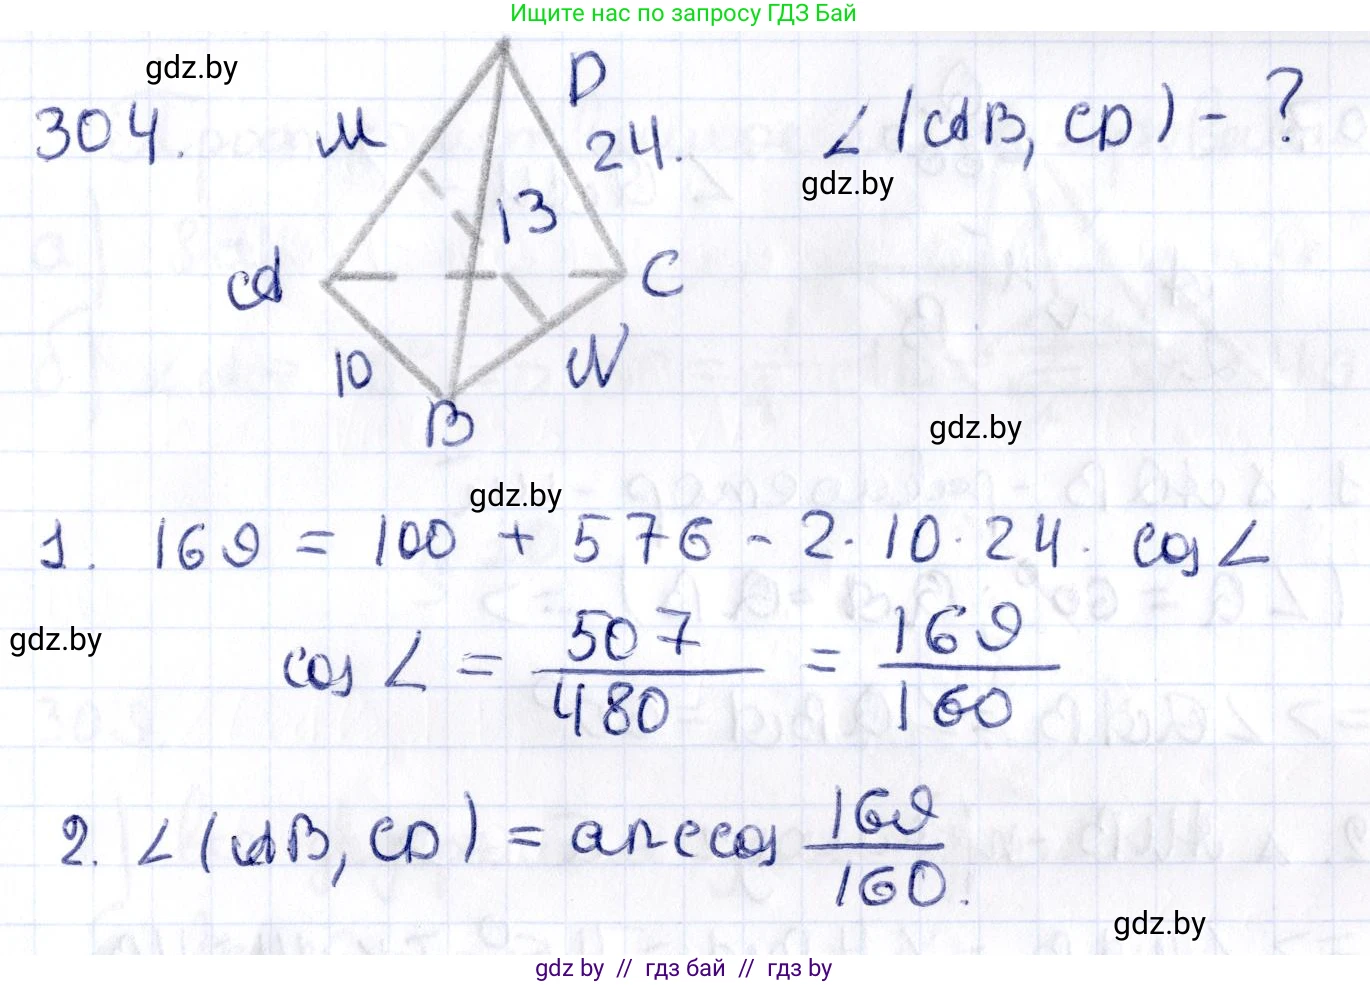 Ищите нас по запросу ГДЗ Бай
gdz.by
304.
M
D
24.
∠(AB, CD) - ?
gdz.by
13
A
C
10
N
B
gdz.by
gdz.by
1. 169 = 100 + 576 - 2·10·24· cos∠
gdz.by
cos∠ = 507/480 = 169/160
2. ∠(AB, CD) = arccos 169/160.
gdz.by
gdz by // гдз бай // гдз by